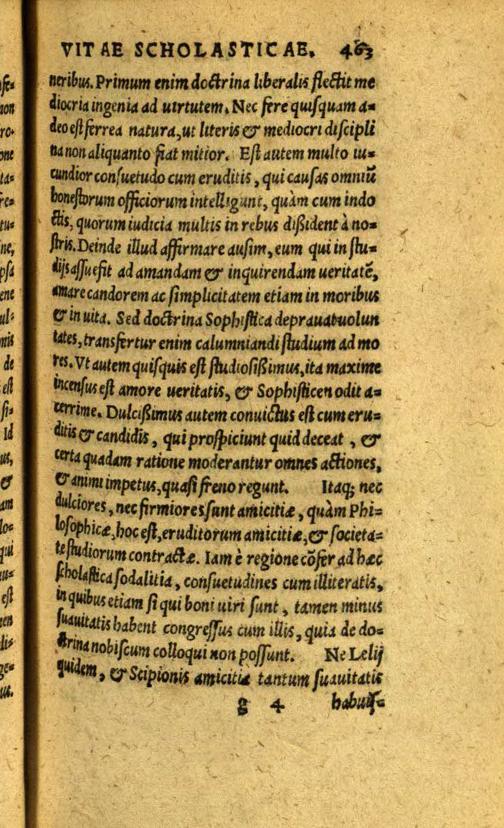 VITAE SCHOLASTICAE. 463
neribus. Primum enim doctrina liberalis flectit me
diocria ingenia ad uirtutem. Nec fere quisquam a-
deo est ferrea natura, ut literis & mediocri discipli
na non aliquanto fiat mitior. Est autem multo iu-
cundior consuetudo cum eruditis, qui causas omniū
honestorum officiorum intelligunt, quàm cum indo
ctis, quorum iudicia multis in rebus dißident à no-
stris. Deinde illud affirmare ausim, eum qui in stu-
dijs assuefit ad amandam & inquirendam ueritatē,
amare candorem ac simplicitatem etiam in moribus
& in uita. Sed doctrina Sophistica deprauat uolun
tates, transfertur enim calumniandi studium ad mo
res. Vt autem quisquis est studiosißimus, ita maxime
incensus est amore ueritatis, & Sophisticen odit a-
cerrime. Dulcißimus autem conuictus est cum eru-
ditis & candidis, qui prospiciunt quid deceat, &
certa quadam ratione moderantur omnes actiones,
& animi impetus, quasi freno regunt. Itaq; nec
dulciores, nec firmiores sunt amicitiæ, quàm Phi-
losophicæ, hoc est, eruditorum amicitiæ, & societa-
te studiorum contractæ. Iam è regione cōfer ad hæc
scholastica sodalitia, consuetudines cum illiteratis,
in quibus etiam si qui boni uiri sunt, tamen minus
suauitatis habent congressus cum illis, quia de do-
ctrina nobiscum colloqui non possunt. Ne Lelij
quidem, & Scipionis amicitia tantum suauitatis
g 4 habuis-